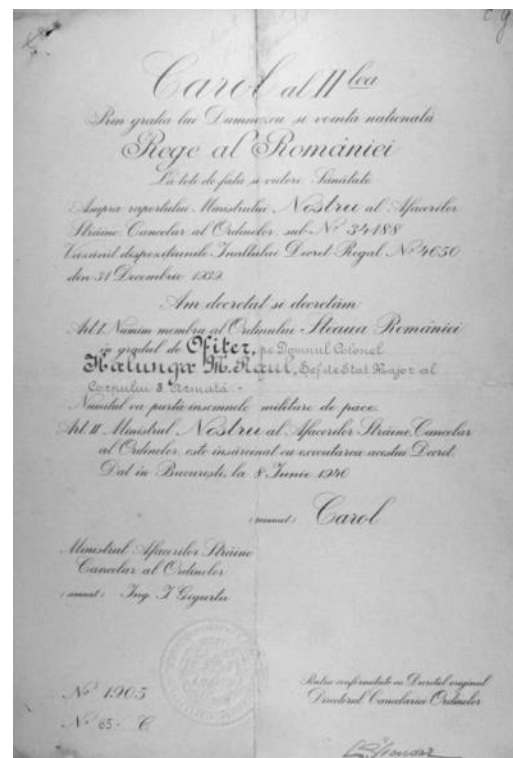 Carol al II lea
Prin grația lui Dumnezeu și voința națională
Rege al României
La toți de față și viitori Sănătate
Asupra raportului Ministrului Nostru al Afacerilor
Străine, Cancelar al Ordinelor, sub No 34188
Văzând dispozițiunile Înaltului Decret Regal No 4650
din 31 Decembrie 1939.
Am decretat și decretăm
Art. I. Numim membru al Ordinului Steaua României
în gradul de Ofițer, pe Domnul Colonel
Halunga M. Raul, Șef de Stat Major al
Corpului 3. Armată.-
Numitul va purta însemnele militare de pace.
Art. II Ministrul Nostru al Afacerilor Străine, Cancelar
al Ordinelor, este însărcinat cu executarea acestui Decret.
Dat în București, la 8 Iunie 1940
(semnat) Carol
Ministrul Afacerilor Străine
Cancelar al Ordinelor
(semnat) Ing. I Gigurtu
No 1905
No 65 - C
Pentru conformitate cu Decretul original
Directorul Cancelariei Ordinelor